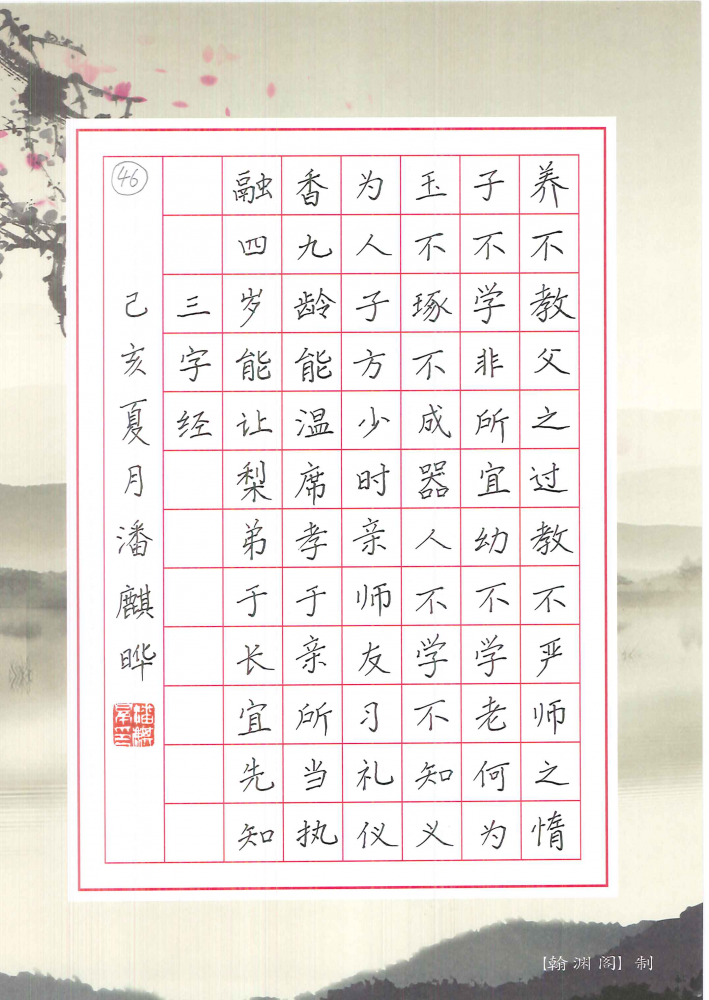 养不教父之过教不严师之惰
子不学非所宜幼不学老何为
玉不琢不成器人不学不知义
为人子方少时亲师友习礼仪
香九龄能温席孝于亲所当执
融四岁能让梨弟于长宜先知
三字经
46
己亥夏月潘麒晔
【翰渊阁】制